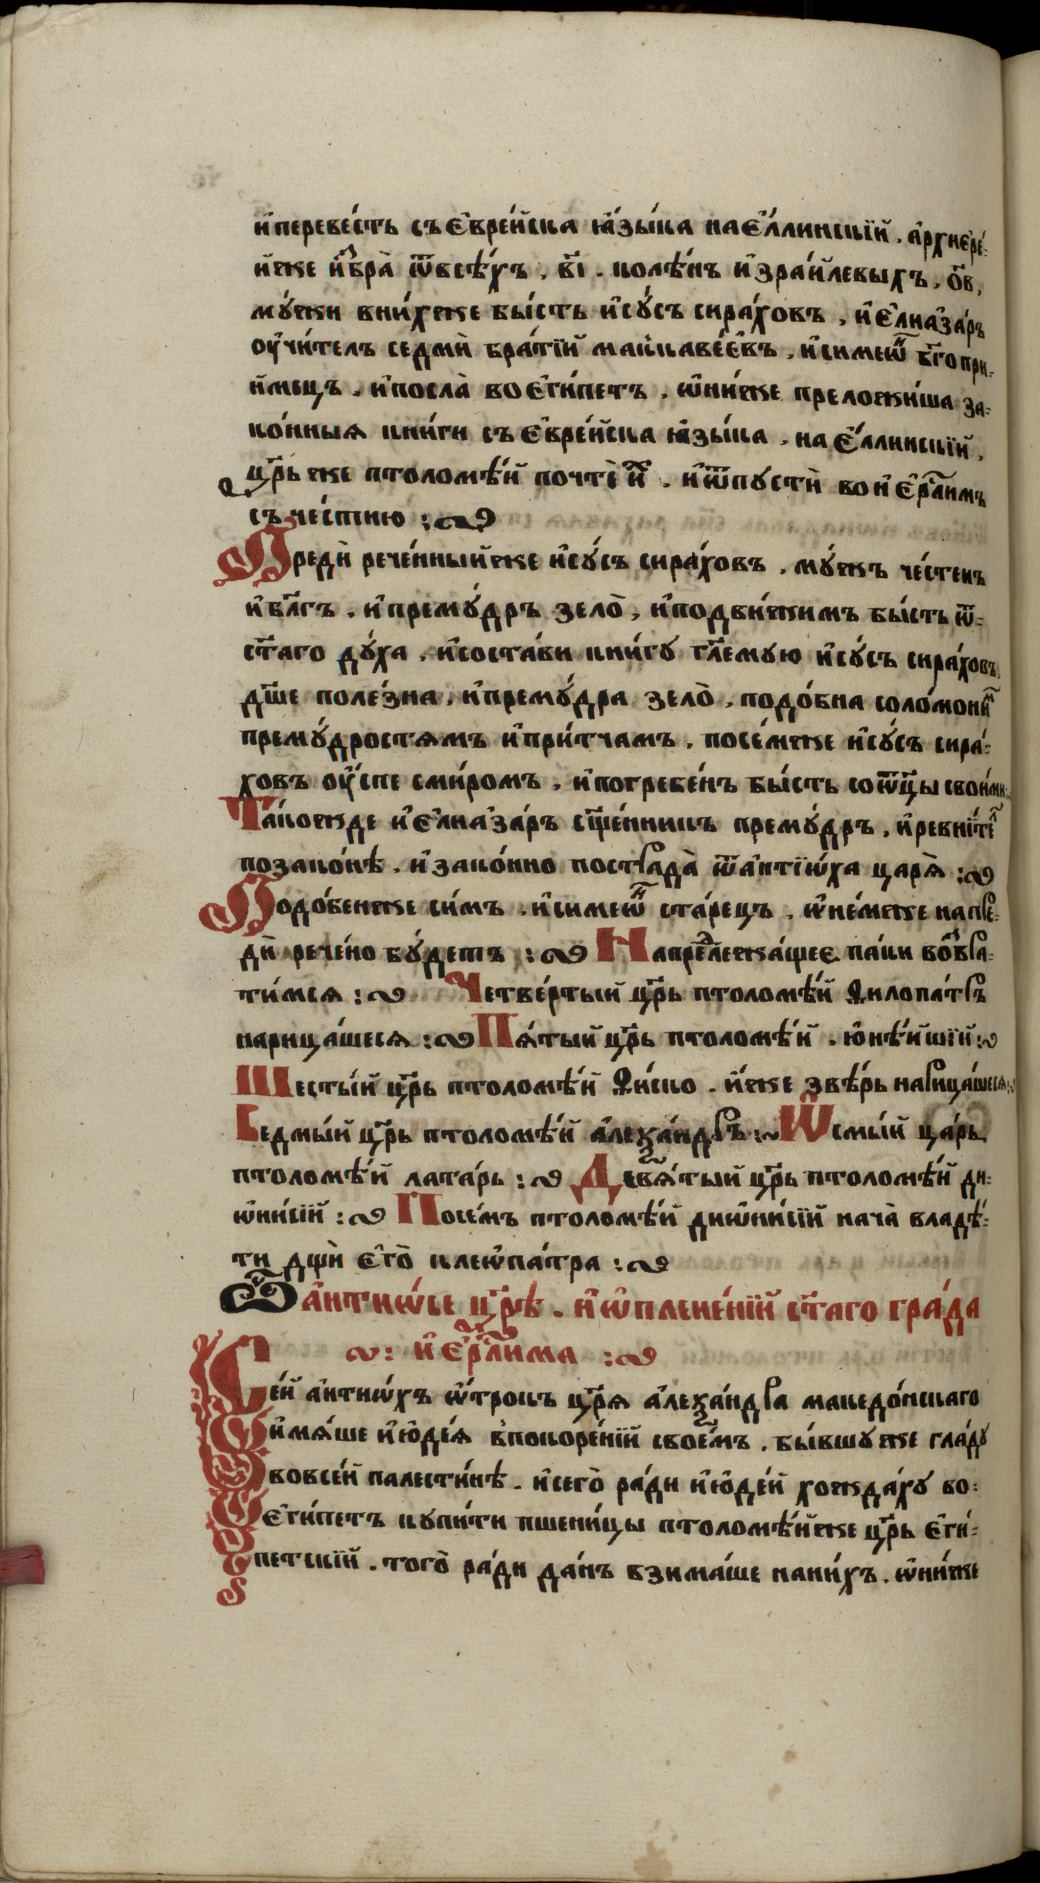 и҆перевести съ є҆вре́йска ꙗ҆зы́ка на є҆́ллинскїй . а҆рхїере́-
й же и҆збра̀ ѿ всѣ́хъ , в҃і . колѣ́нъ и҆зраи́левыхъ , о҃в ,
му́жи в ни́хже бы́сть и҆су́съ сира́ховъ , и҆ є҆лиаза́ръ
ᲂу҆чи́тель седмѝ бра́тїй маккаве́євъ , и҆ симеѡ́нъ бг҃опри-
и́мецъ . и҆ посла̀ во є҆ги́петъ . ѡ҆ни́же преложи́ша за-
ко́нныя кни́ги съ є҆вре́йска ꙗ҆зы́ка . на є҆́ллинскїй ,
цр҃ь же птоломѣ́й почтѐ и҆̀хъ . и҆ ѿпустѝ во и҆єрⷭ҇ли́мъ
съ че́стию :~
Предѝ рече́нный же и҆су́съ сира́ховъ . му́жъ че́стенъ
и҆ бл҃гъ . и҆ прему́дръ зело̀ , и҆ подви́жимъ бы́сть ѿ-
ст҃аго ду́ха . и҆ соста́ви кни́гу гл҃емую и҆су́съ сира́ховъ ,
дш҃е поле́зна , и҆ прему́дра зело̀ . подо́бна соло́монимъ
прему́дростямъ и҆ при́тчамъ . посе́мже и҆су́съ сира́-
ховъ ᲂу҆́спе сми́ромъ . и҆ погребе́нъ бы́сть со ѻ҆тцы̀ свои́ми :
Та́кожде и҆ є҆лиаза́ръ сщ҃е́нникъ прему́дръ . и҆ ревни́тель
по зако́нѣ . и҆ зако́нно пострада̀ ѿ а҆нтїѡ́ха царя̀ :~
Подо́бенже си́мъ . и҆ симеѡ́нъ ста́рецъ . ѡ҆ не́мже напре-
дѝ рече́но бу́детъ :~ На прⷣележа́щеє паки возвра-
ти́мся :~ Четве́ртый цр҃ь птоломѣ́й Ѳилопа́тръ
нарица́шеся :~ Пя́тый цр҃ь птоломѣ́й . ю҆нѣ́йшїй :~
Шесты́й цр҃ь птоломѣ́й Ѳи́ско . и҆́же звѣ́рь нарица́шеся :~
Седмы́й цр҃ь птоломѣ́й а҆леѯа́ндръ :~ Ѻсмы́й ца́рь
птоломѣ́й лата́рь :~ Девя́тый цр҃ь птоломѣ́й ди-
ѡ҆ни́сїй :~ По се́мъ птоломѣ́й диѡ҆ни́сїй нача̀ владѣ́-
ти дщѝ є҆го̀ клеѡ҆па́тра :~
Ѡ҆ а҆нтиѡ́хе цр҃ѣ̀ . и҆ ѡ҆ плене́нїй ст҃аго гра́да
~: и҆єрⷭ҇ли́ма :~
Се́й а҆нтиѡ́хъ ѻ҆́трокъ цр҃я̀ а҆леѯа́ндра македо́нскаго
и҆мя́ше и҆ ю҆де́я в покоре́нїй свое́мъ . бы́вшу же гла́ду
во все́й палести́нѣ . и҆ сего̀ ра́ди и҆ ю҆де́й хожда́ху во :
є҆ги́петъ купи́ти пшени́цы птоломѣ́й же цр҃ь є҆ги́-
петскїй . того̀ ра́ди да́нь взима́ше на ни́хъ . ѡ҆ни́же